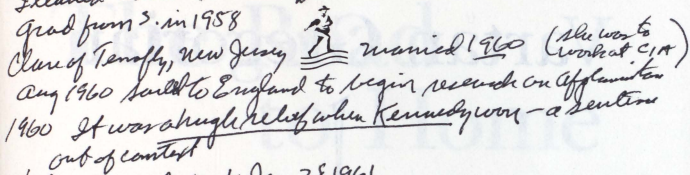 grad from S. in 1958
Clare of Tenafly, New Jersey married 1960 (she was to work at CIA)
Aug 1960 sailed to England to begin research on Afghanistan
1960 It was a hugh relief when Kennedy won - a sentence
out of context
1961